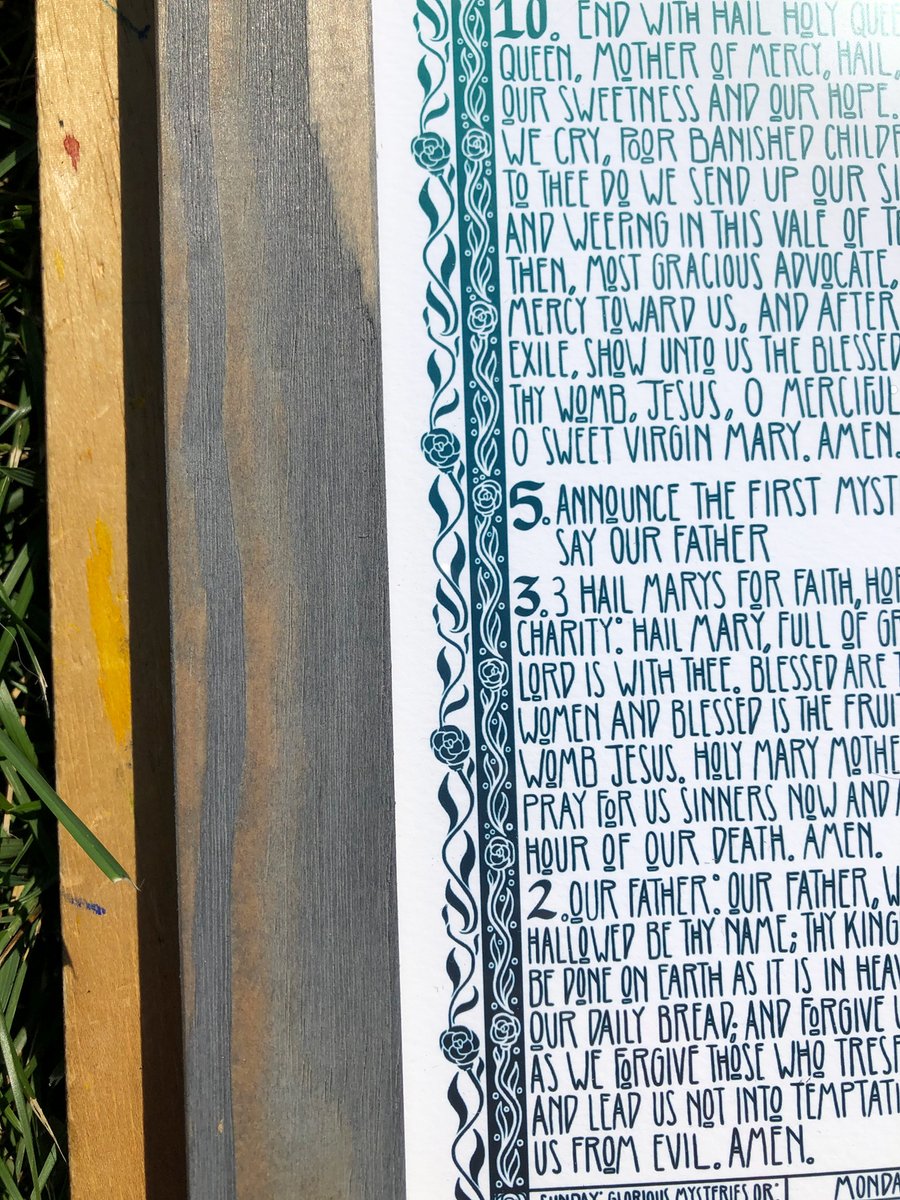 10. END WITH HAIL HOLY QUEE
QUEEN, MOTHER OF MERCY, HAIL,
OUR SWEETNESS AND OUR HOPE.
WE CRY, POOR BANISHED CHILDR
TO THEE DO WE SEND UP OUR SI
AND WEEPING IN THIS VALE OF T
THEN, MOST GRACIOUS ADVOCATE,
MERCY TOWARD US, AND AFTER
EXILE, SHOW UNTO US THE BLESSED
THY WOMB, JESUS, O MERCIFUL
O SWEET VIRGIN MARY. AMEN.
5. ANNOUNCE THE FIRST MYST
SAY OUR FATHER
3. 3 HAIL MARYS FOR FAITH, HOP
CHARITY: HAIL MARY, FULL OF GR
LORD IS WITH THEE. BLESSED ARE T
WOMEN AND BLESSED IS THE FRUIT
WOMB JESUS. HOLY MARY MOTHE
PRAY FOR US SINNERS NOW AND A
HOUR OF OUR DEATH. AMEN.
2. OUR FATHER: OUR FATHER, W
HALLOWED BE THY NAME; THY KING
BE DONE ON EARTH AS IT IS IN HEAV
OUR DAILY BREAD; AND FORGIVE U
AS WE FORGIVE THOSE WHO TRESP
AND LEAD US NOT INTO TEMPTATI
US FROM EVIL. AMEN.
SUNDAY: GLORIOUS MYSTERIES OR:
MONDA